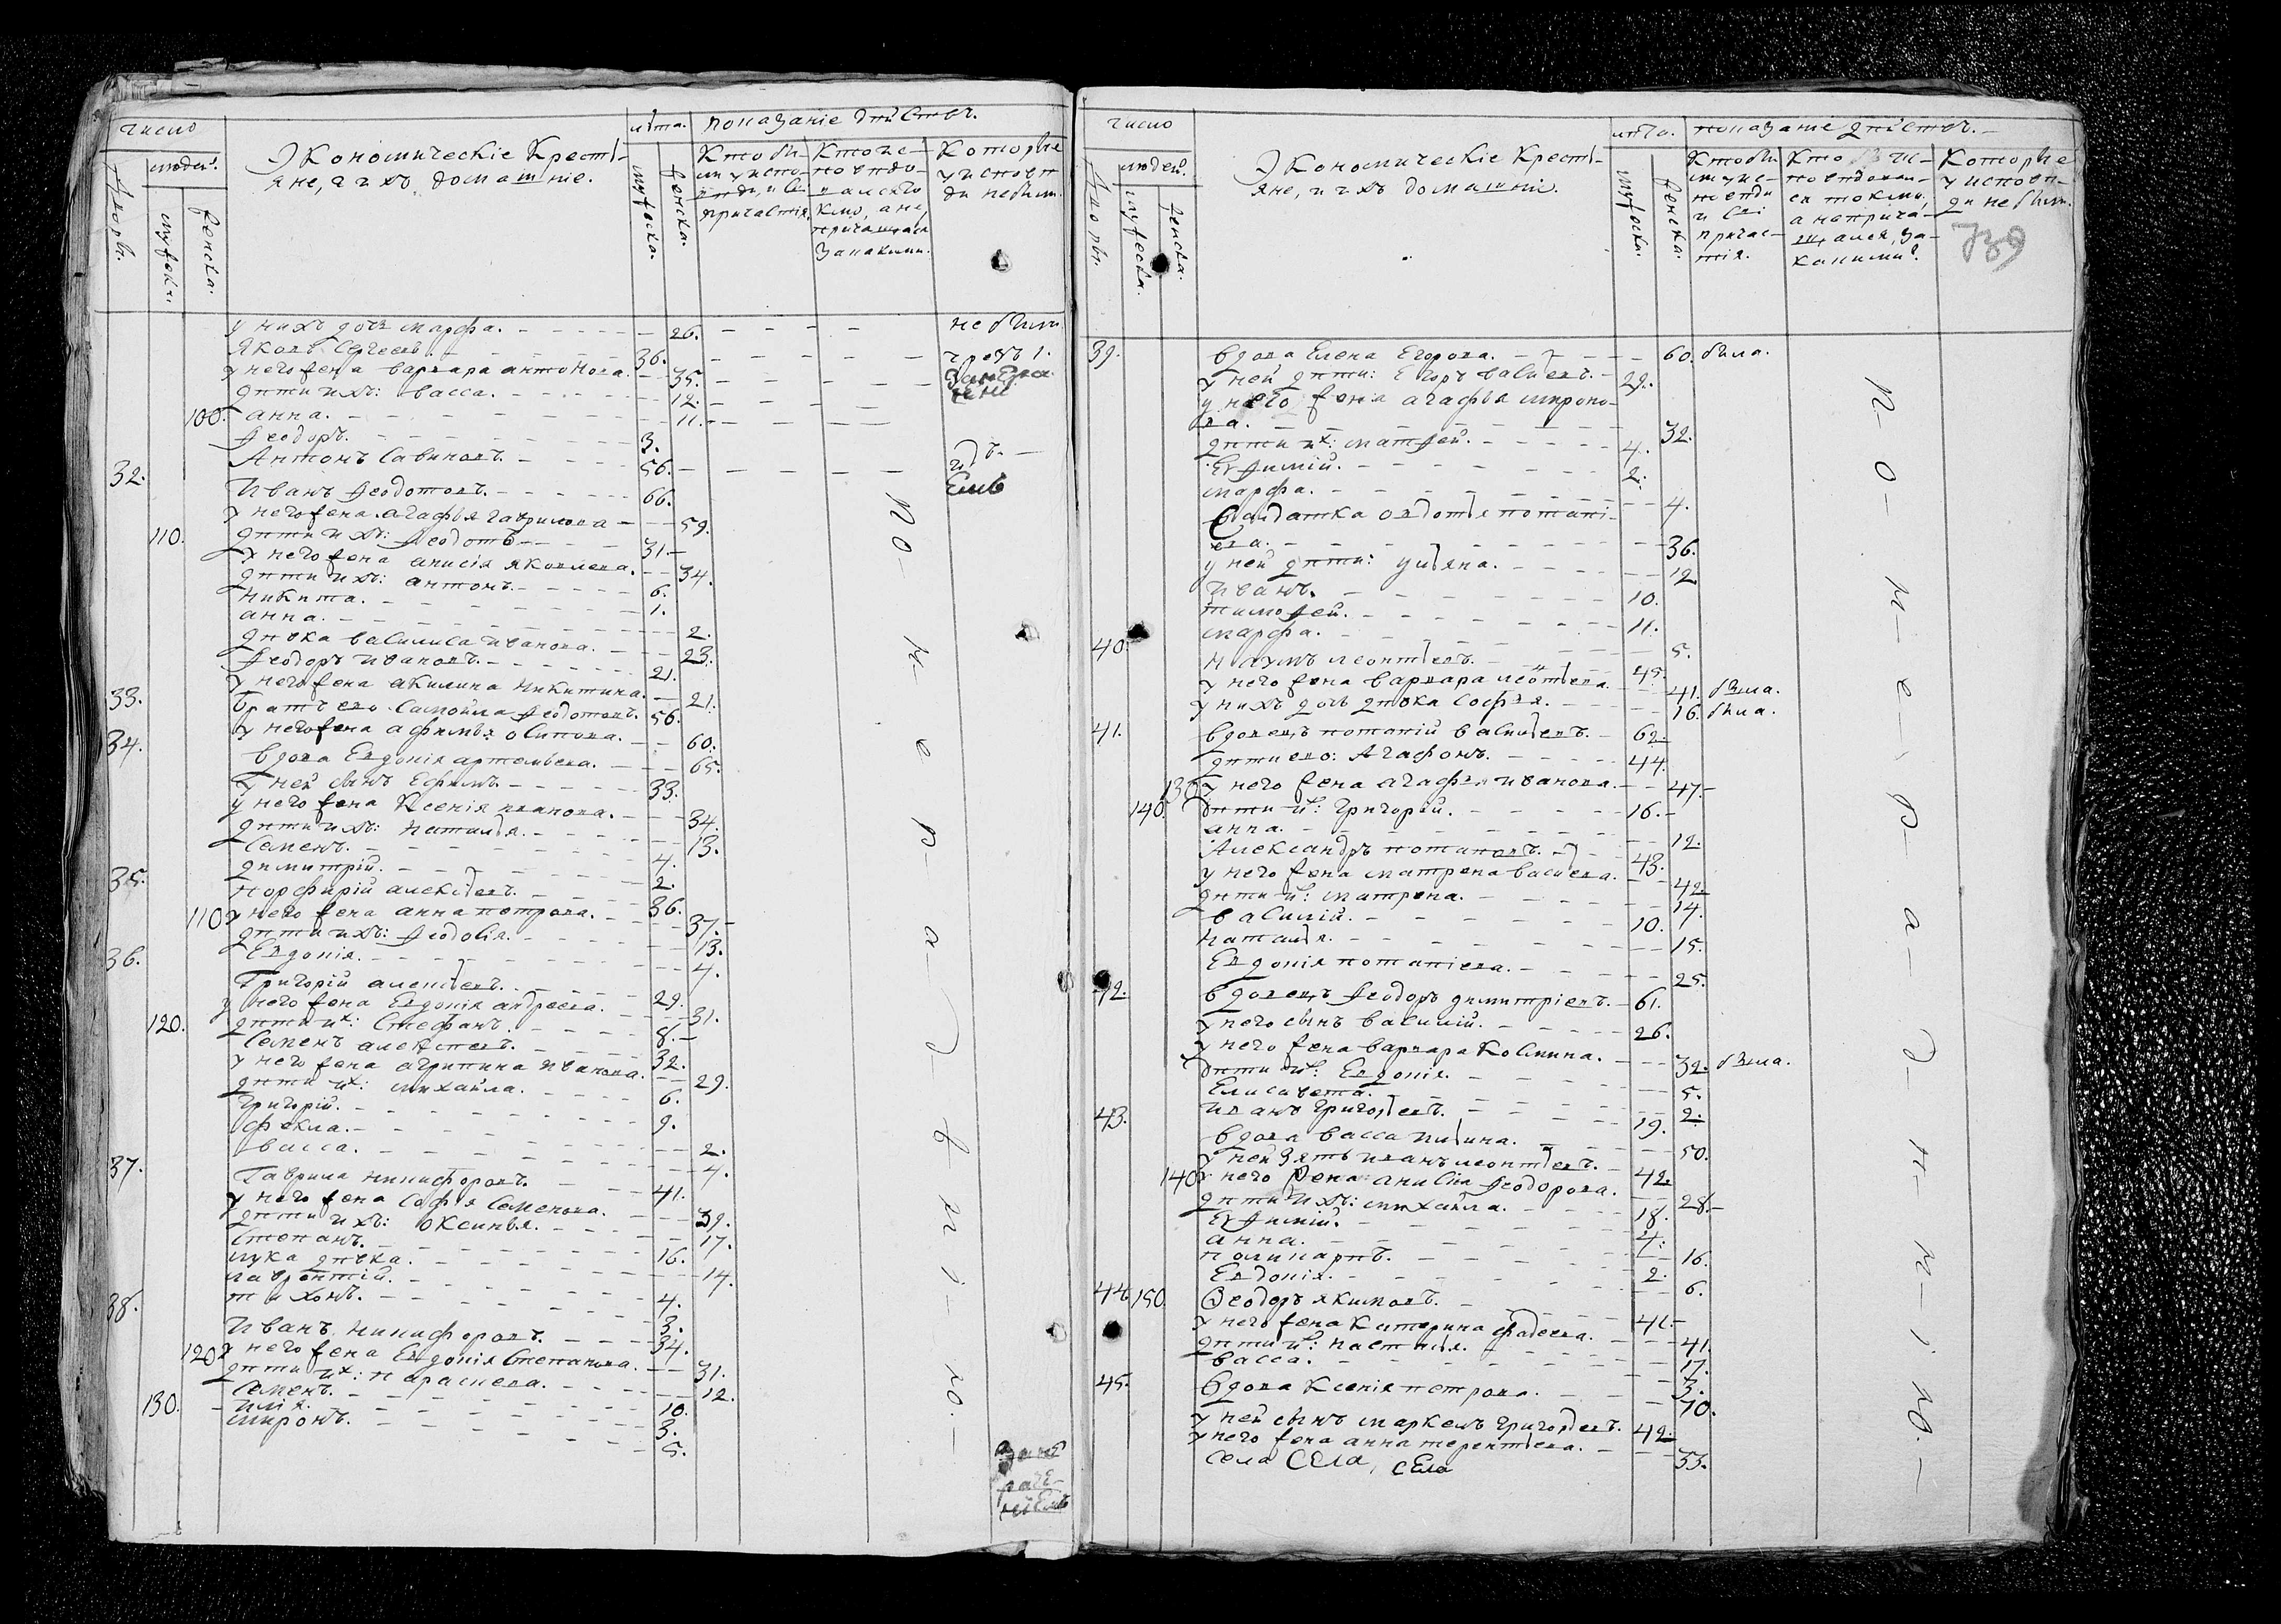 число
лѣта.
показаніе дѣйствъ.
людей.
Экономическіе Крестья-
яне, и ихъ домашніе.
Дворы.
мужеска.
женска.
мужеска.
женска.
Которые
у исповѣ
ди небыли.
у нихъ дочь марфа. 26. небыли
Яковъ Сергеевъ. 36. чрезъ 1.
у него жена варвара антонова. 35.
дѣти ихъ: васса. 12.
100. анна. 11.
Ѳеодоръ. 3.
Антонъ Савиновъ. 56.
32. Иванъ Ѳеодотовъ. 66.
у него жена агафья гаврилова 59.
110. дѣти ихъ: Ѳеодотъ 31.
у него жена анисія яковлева. 34.
дѣти ихъ: антонъ. 6.
никита. 1.
анна. 2.
дѣвка василиса иванова. 23.
Ѳеодоръ ивановъ. 21.
у него жена акилина никитина. 21.
33. братъ его Самойла Ѳеодотовъ. 56.
у него жена афимья осипова. 60.
34. вдова Евдокія артемьева. 65.
у ней сынъ Ефимъ. 33.
у него жена Ксенія иванова. 34.
дѣти ихъ: наталья. 13.
Семенъ. 4.
димитрій. 2.
35. порфирій алексѣевъ. 36.
110. у него жена анна петрова. 37.
дѣти ихъ: Ѳеодосія. 13.
Евдокія. 4.
36. Григорій алексѣевъ. 29.
у него жена Евдокія андреева. 31.
120. дѣти их: Стефанъ. 8.
Семенъ алексѣевъ. 32.
у него жена агрипина иванова. 29.
дѣти их: михайла. 6.
григорій. 9.
фекла. 2.
васса. 4.
37. Гаврила никифоровъ. 41.
у него жена Софья Семенова. 39.
дѣти ихъ: оксинья. 17.
Степанъ. 16.
лука дѣвка. 14.
лаврентій. 4.
тихонъ. 3.
38. Иванъ никифоровъ. 34.
120. у него жена Евдокія Степанова. 31.
дѣти их: параскева. 12.
Семенъ. 10.
130. илія. 3.
миронъ. 5.
по-нерадѣнію.
число
лѣта.
показаніе дѣйствъ.
людей.
Экономическіе Крестья-
яне, и ихъ домашніе.
Дворы.
мужеска.
женска.
мужеска.
женска.
Которые
у исповѣ-
ди небыли.
739
39. вдова Елена Егорова. 60. была.
у ней дѣти: Егоръ васильевъ. 29.
у него жена агафья мироно-
ва. 32.
дѣти их: матѳей. 4.
Евѳимій. 2.
марфа. 4.
Салдатка овдотья потапі-
ева. 36.
у ней дѣти: ульяна. 12
Иванъ. 10.
тимоѳей. 11.
марфа. 5.
40. наумъ леонтьевъ. 45.
у него жена варвара леонтьева. 41. была.
у нихъ дочь дѣвка софья. 16. была.
41. вдовецъ потапій васильевъ. 62.
дѣти его: Агафонъ. 44.
130. у него жена агафья иванова. 47.
140. дѣти их: григорій. 16.
анна. 12.
Александръ потаповъ. 43.
у него жена матрена васильева. 42
дѣти их: матрена. 14.
василій. 10.
наталья. 15.
Евдокія потапіева. 25.
42. вдовецъ Ѳеодоръ димитріевъ. 61.
у него сынъ василій. 26.
у него жена варвара Космина. 32. была.
дѣти их: Евдокія. 5.
Елисавета. 2.
Иванъ григорьевъ. 19.
43. вдова васса ильина. 50.
у ней зять иванъ леонтьевъ. 42.
140. у него жена анисія Ѳеодорова. 28.
дѣти ихъ: михайла. 18.
Евѳимій. 4.
анна. 16.
поликарпъ. 2.
Евдокія. 6.
44. 150. Ѳеодоръ якимовъ. 41.
у него жена Катерина фадеева. 41.
дѣти их: настасья. 17.
васса. 3.
45. вдова Ксенія петрова. 70.
у ней сынъ маркелъ григорьевъ. 42
у него жена анна терентьева. 53.
села Села, села
по-нерадѣнію.